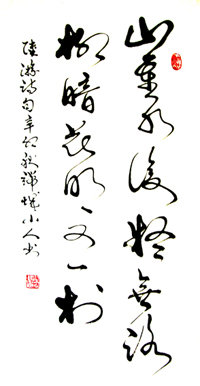 山重水複疑無路
柳暗花明又一村
陸游詩句辛卯秋瑞城小人书